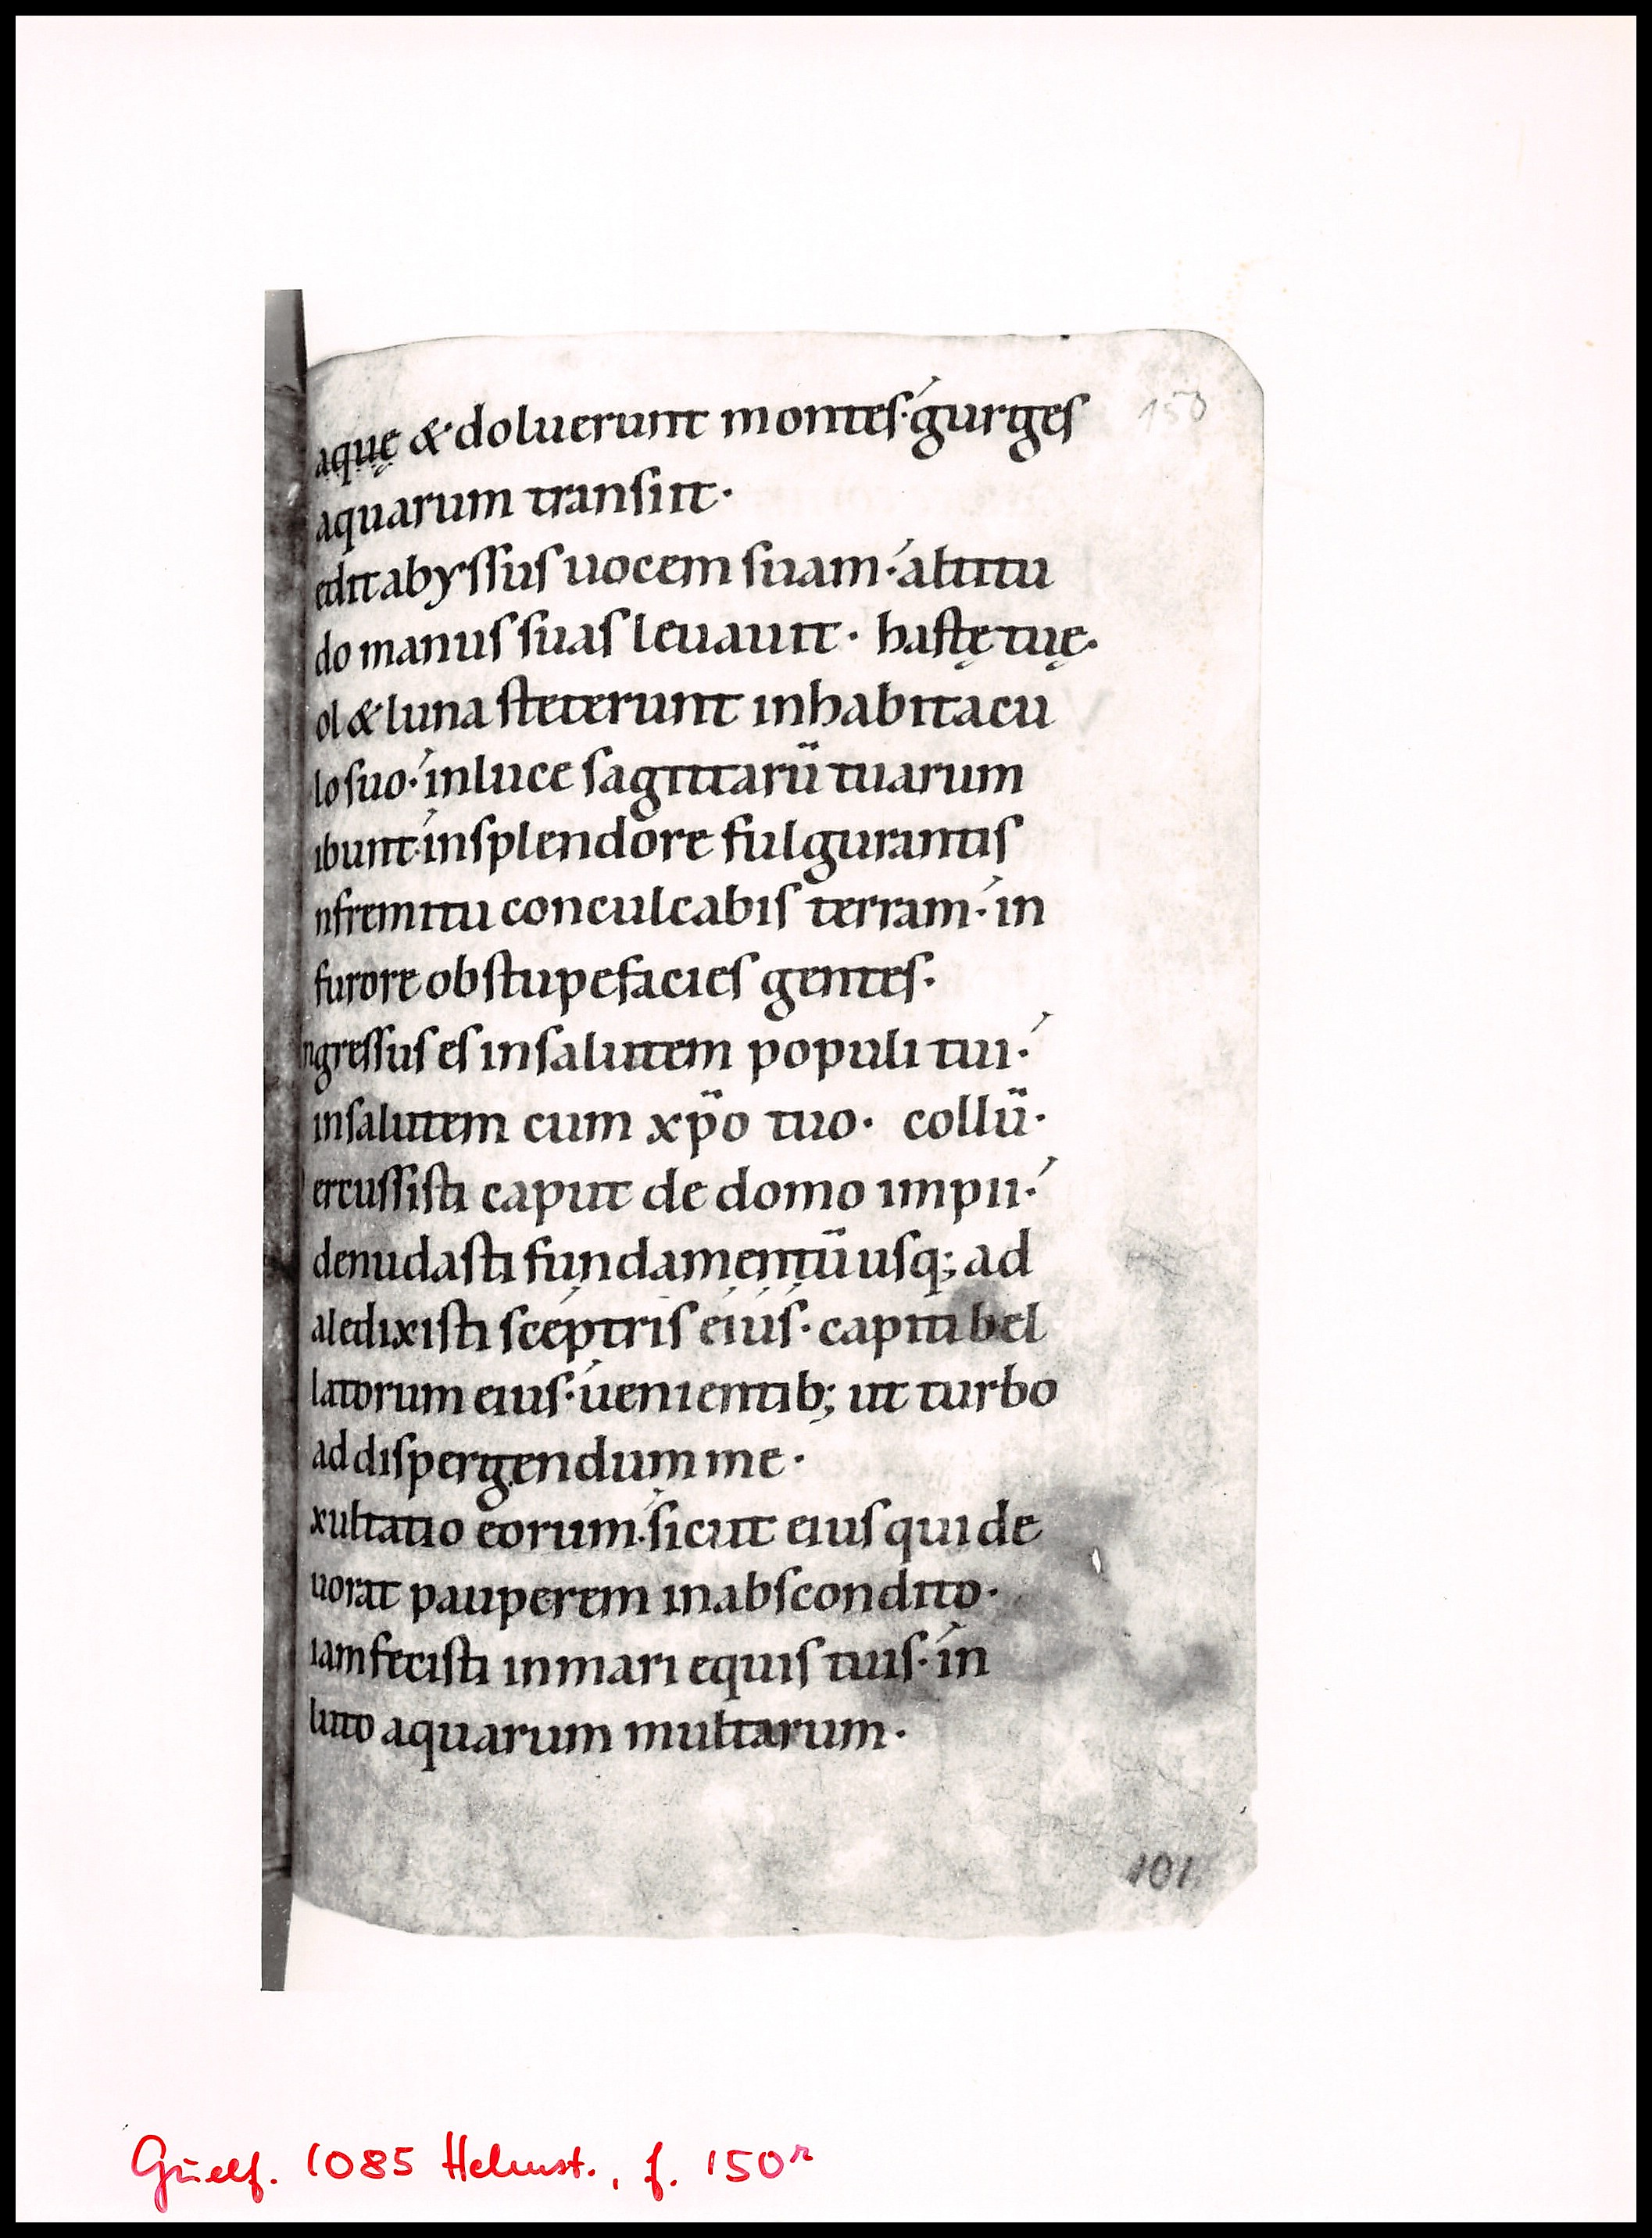 150
aquę & doluerunt montes· gurges
aquarum transiit·
edit abyssus uocem suam· altitu
do manus suas leuauit· hastę tuę·
ol & luna steterunt inhabitacu
lo suo· inluce sagittarū tuarum
ibunt· insplendore fulgurantis
nfremitu conculcabis terram· in
furore obstupefacies gentes·
ngressus es insalutem populi tui·
insalutem cum xp̄o tuo· collū·
ercussisti caput de domo impii·
denudasti fundamentū usq; ad
aledixisti sceptris eius· capiti bel
latorum eius· uenientib; ut turbo
ad dispergendum me·
xultatio eorum· sicut eius qui de
uorat pauperem inabscondito·
iam fecisti inmari equis tuis· in
luto aquarum multarum·
101
Guelf. 1085 Helmst., f. 150r